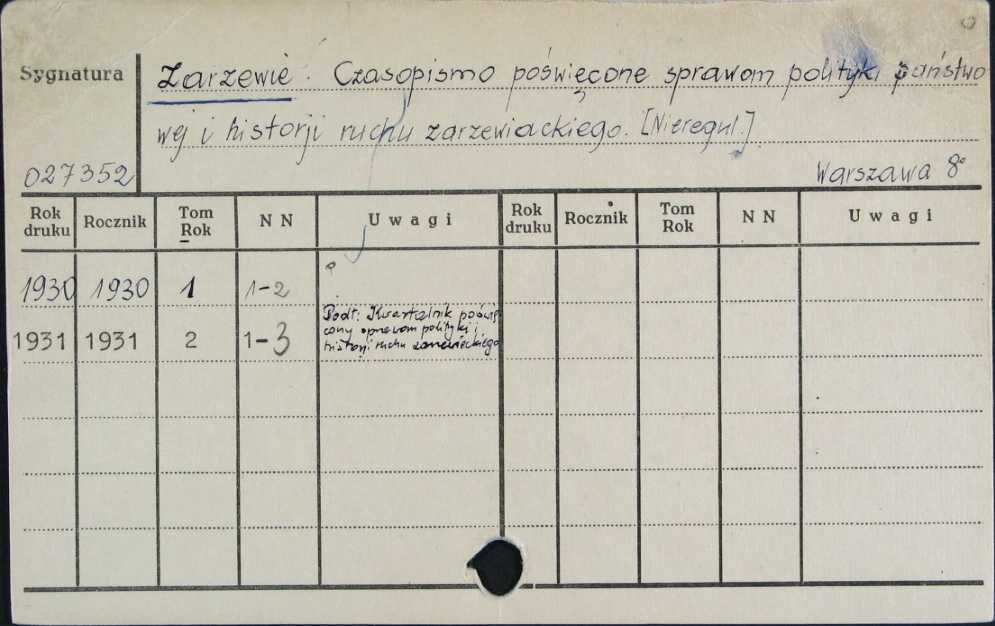 Sygnatura
Zarzewie : Czasopismo poświęcone sprawom polityki państwo
wej i historji ruchu zarzewiackiego. [Nieregul.]
027352
Warszawa 8°
Rok druku Rocznik Tom Rok N N Uwagi Rok druku Rocznik Tom Rok N N Uwagi
1930 1930 1 1-2
1931 1931 2 1-3
Podt: Kwartalnik poświę
cony sprawom polityki i
historji ruchu zarzewieckiego